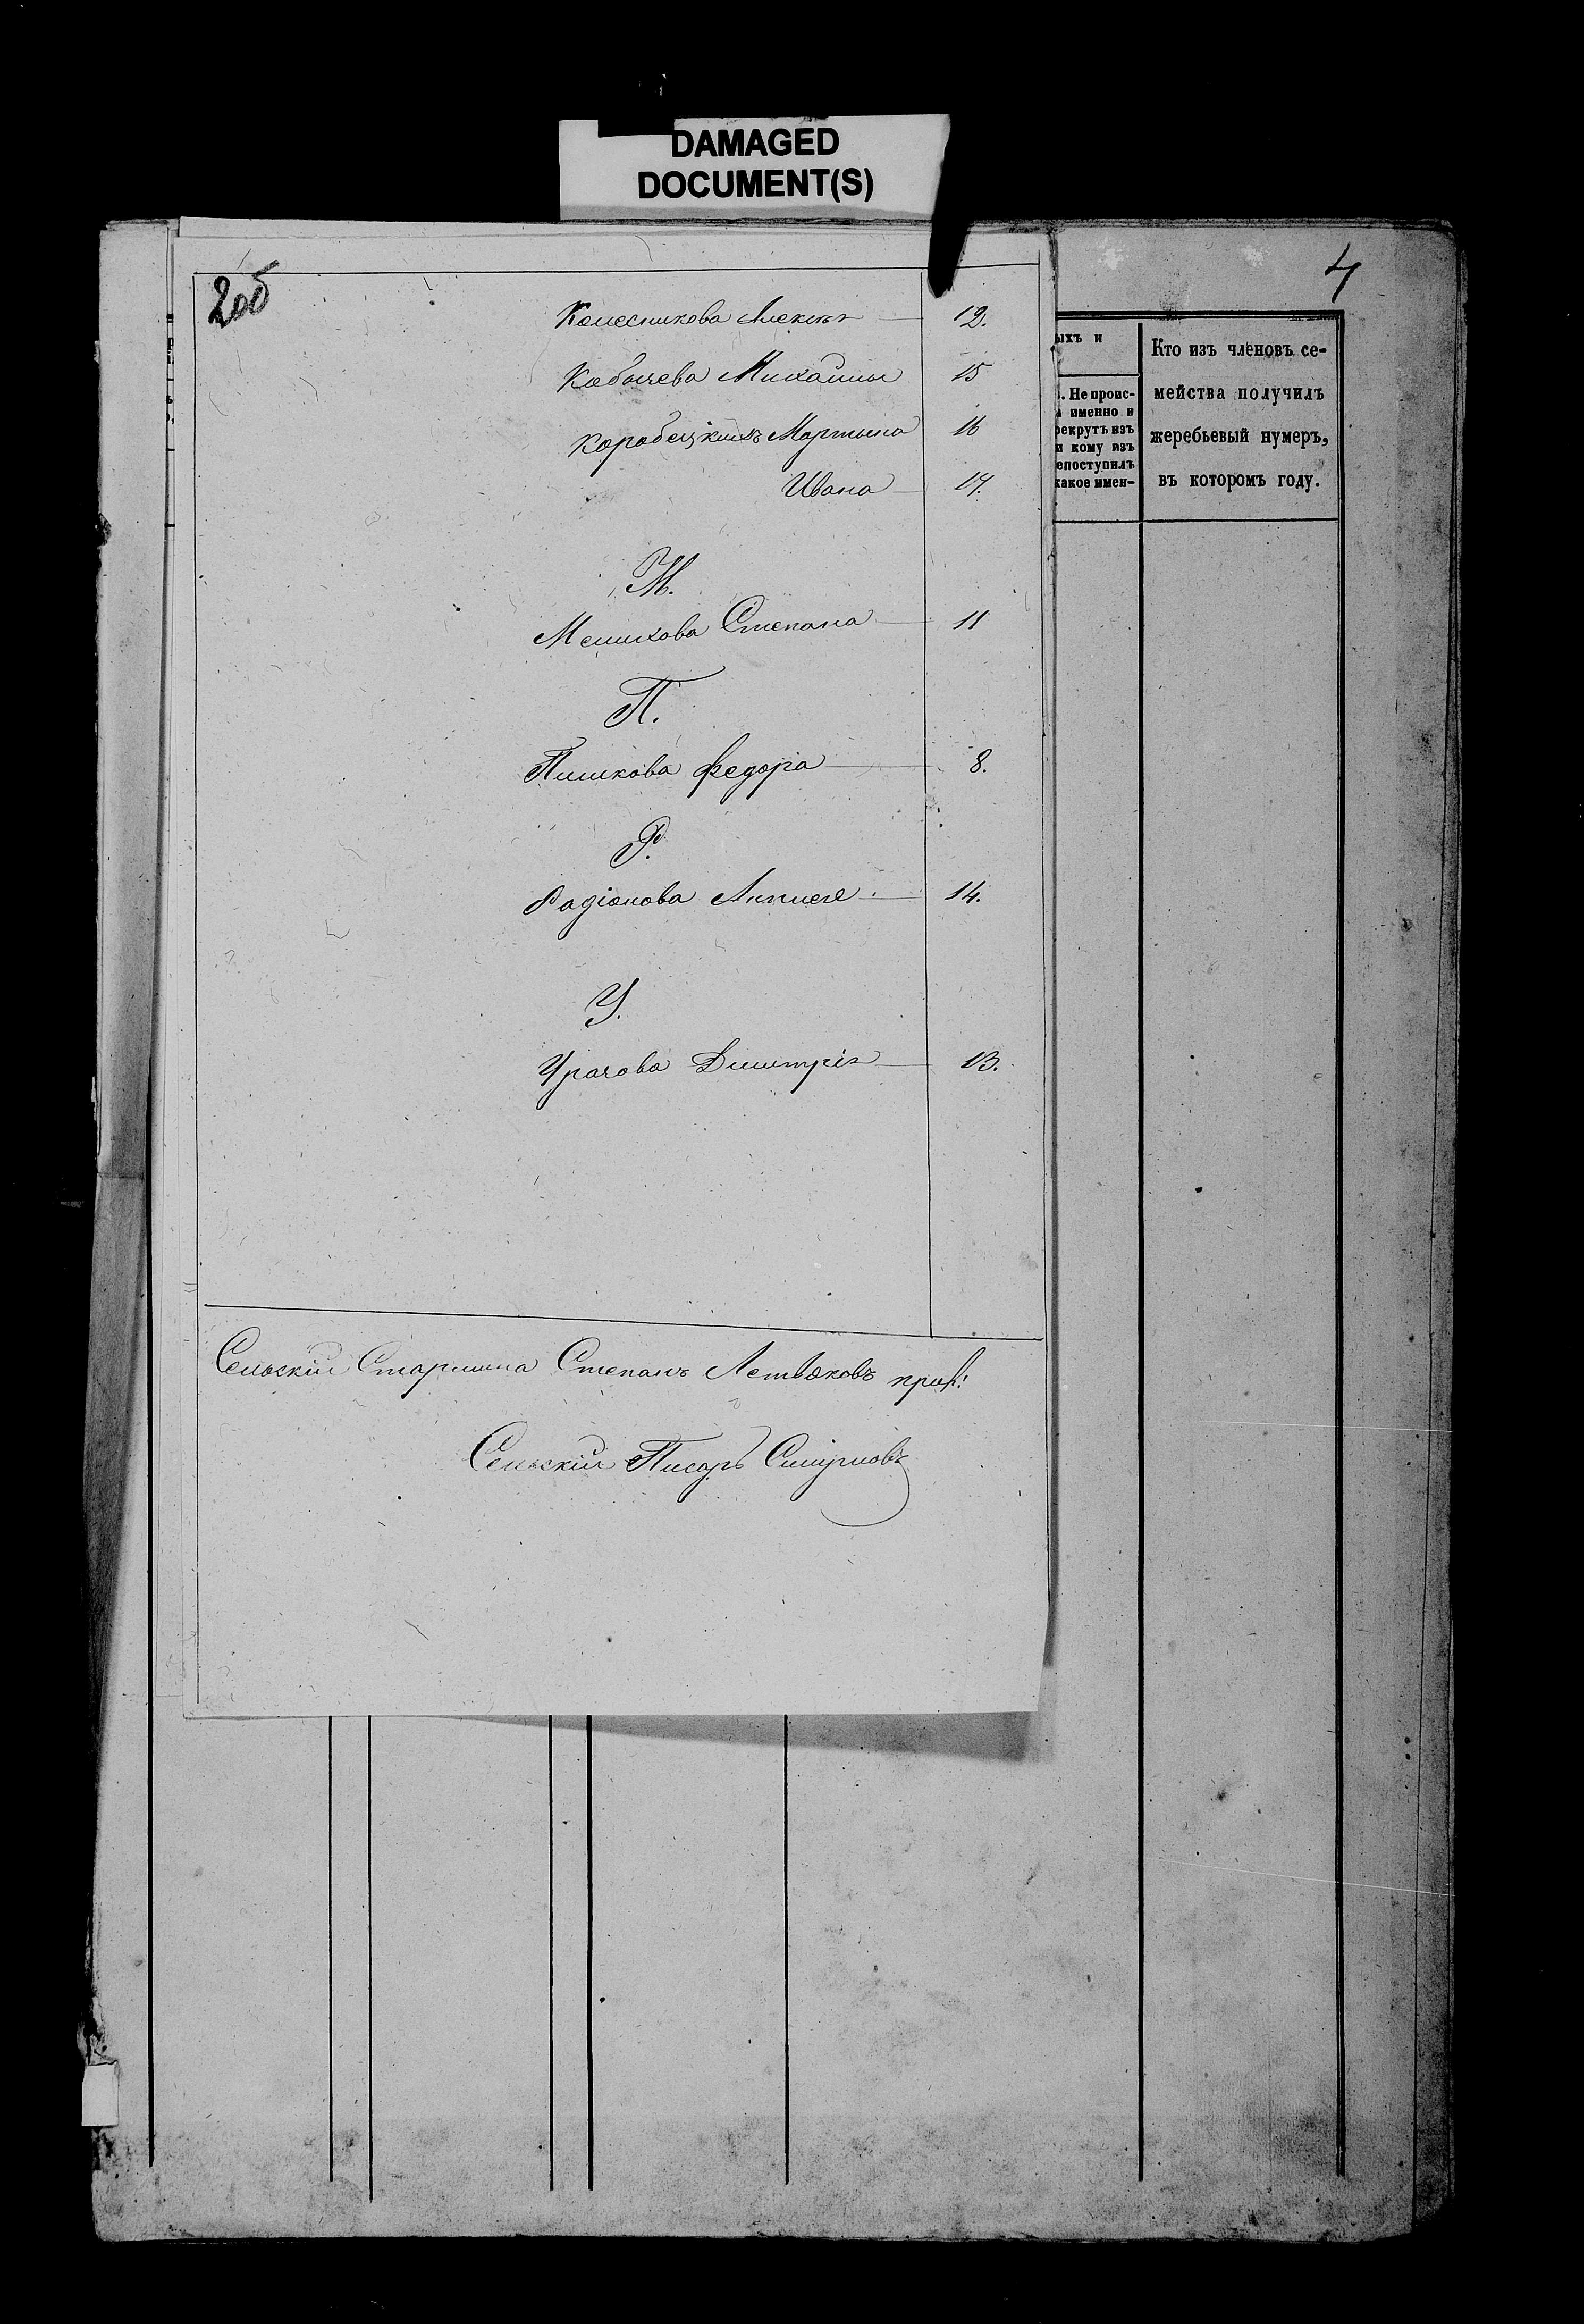 DAMAGED
DOCUMENT(S)
2об
4
Колесникова Алексѣя 12.
Кобычева Михаилы 15
Коробецкихъ Мартына 16
Ивана 17.
М.
Мешкова Степана 11
П.
Пишкова Федора 8.
Р.
Радіонова 14.
У.
Урачова Дмитрія 13.
Сельскій Старшина Степанъ прил:
Сельскій Писарь Смирновъ
ыхъ и
. Не проис-
именно и
рекрутъ изъ
и кому изъ
епоступилъ
какое имен-
Кто изъ членовъ се-
мейства получилъ
жеребьевый нумеръ,
въ которомъ году.